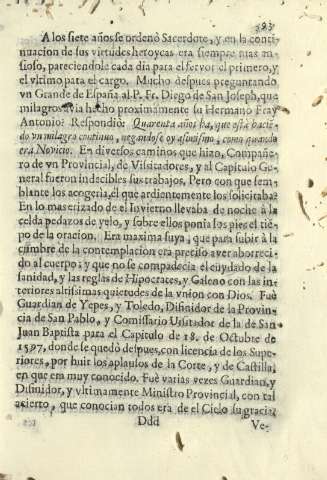 393
A los siete años se ordenò Sacerdote, y en la conti-
nuacion de sus virtudes heroycas era siempre mas an-
sioso, pareciendole cada dia para el fervor el primero, y
el vltimo para el cargo. Mucho despues preguntando
vn Grande de España al P. Fr. Diego de San Joseph, que
milagros avia hecho proximamente su Hermano Fray
Antonio? Respondiò: Quarenta años ha, que està hacié-
do vn milagro continuo, negandose oy assimismo, como quando
era Novicio. En diversos caminos que hizo, Compañe-
ro de vn Provincial, de Visitadores, y al Capitulo Ge-
neral fueron indecibles sus trabajos, Pero con que sem-
blante los acogeria, el que ardientemente los solicitaba?
En lo mas erizado de el Invierno llevaba de noche à la
celda pedazos de yelo, y sobre ellos ponia los pies el tié-
po de la oracion. Era maxima suya, que para subir à la
cumbre de la contemplacion era preciso aver aborreci-
do al cuerpo; y que no se compadecia el cuydado de la
sanidad, y las reglas de Hipocrates, y Galeno con las in-
teriores altissimas quietudes de la vnion con Dios. Fuè
Guardian de Yepes, y Toledo, Difinidor de la Provin-
cia de San Pablo, y Comissario Visitador de la de San
Juan Baptista para el Capitulo de 18. de Octubre de
1597, donde se quedò despues, con licencia de los Supe-
riores, por huir los aplausos de la Corte, y de Castilla,
en que era muy conocido. Fuè varias vezes Guardian, y
Difinidor, y vltimamente Ministro Provincial, con tal
acierto, que conocian todos era de el Cielo su gracia:
Ddd Ve-